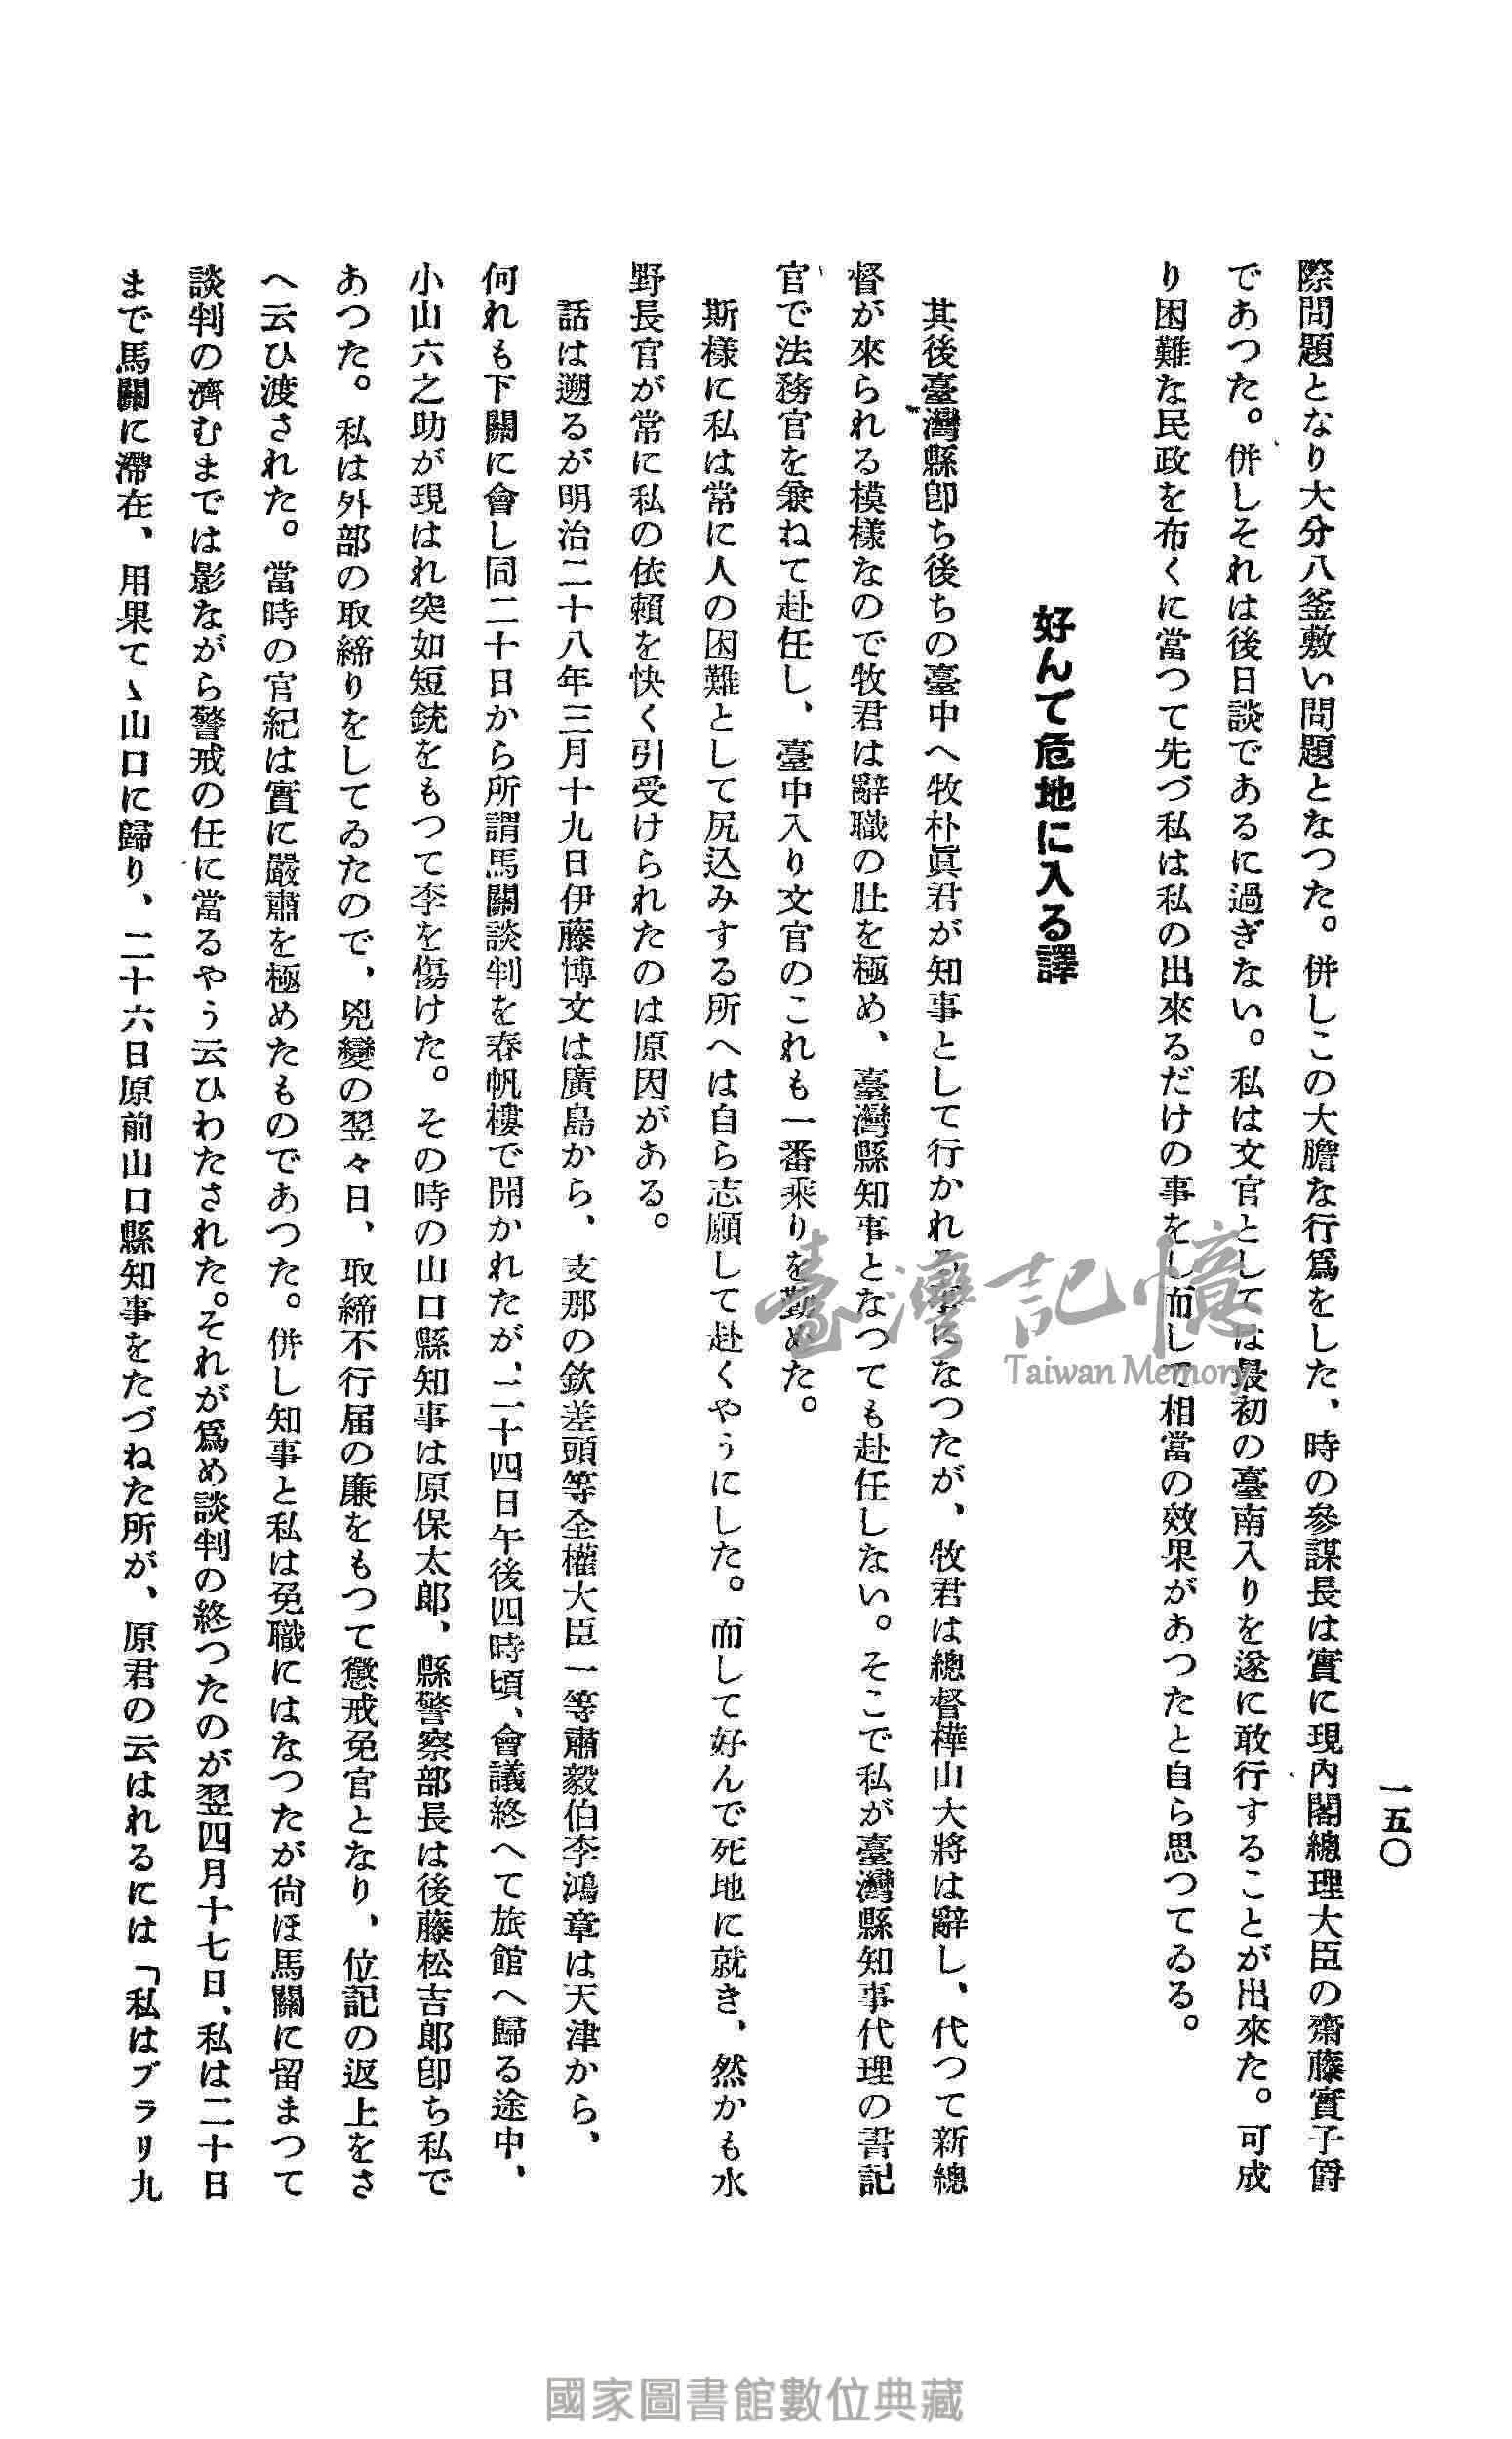 一五〇
際問題となり大分八釜敷い問題となつた。併しこの大膽な行爲をした、時の參謀長は實に現內閣總理大臣の齋藤實子爵
であつた。併しそれは後日談であるに過ぎない。私は文官としては最初の臺南入りを遂に敢行することが出來た。可成
り困難な民政を布くに當つて先づ私は私の出來るだけの事をし而して相當の效果があつたと自ら思つてゐる。
好んで危地に入る譯
其後臺灣縣卽ち後ちの臺中へ牧朴眞君が知事として行かれる事になつたが、牧君は總督樺山大將は辭し、代つて新總
督が來られる模樣なので牧君は辭職の肚を極め、臺灣縣知事となつても赴任しない。そこで私が臺灣縣知事代理の書記
官で法務官を兼ねて赴任し、臺中入り文官のこれも一番乘りを勤めた。
斯樣に私は常に人の困難として尻込みする所へは自ら志願して赴くやうにした。而して好んで死地に就き、然かも水
野長官が常に私の依賴を快く引受けられたのは原因がある。
話は遡るが明治二十八年三月十九日伊藤博文は廣島から、支那の欽差頭等全權大臣一等肅毅伯李鴻章は天津から、
何れも下關に會し同二十日から所謂馬關談判を春帆樓で開かれたが、二十四日午後四時頃、會議終へて旅館へ歸る途中、
小山六之助が現はれ突如短銃をもつて李を傷けた。その時の山口縣知事は原保太郎、縣警察部長は後藤松吉郎卽ち私で
あつた。私は外部の取締りをしてゐたので、兇變の翌々日、取締不行屆の廉をもつて懲戒免官となり、位記の返上をさ
へ云ひ渡された。當時の官紀は實に嚴肅を極めたものであつた。併し知事と私は免職にはなつたが尙ほ馬關に留まつて
談判の濟むまでは影ながら警戒の任に當るやう云ひわたされた。それが爲め談判の終つたのが翌四月十七日、私は二十日
まで馬關に滯在、用果てゝ山口に歸り、二十六日原前山口縣知事をたづねた所が、原君の云はれるには「私はブラリ九
臺灣記憶
Taiwan Memory
國家圖書館數位典藏